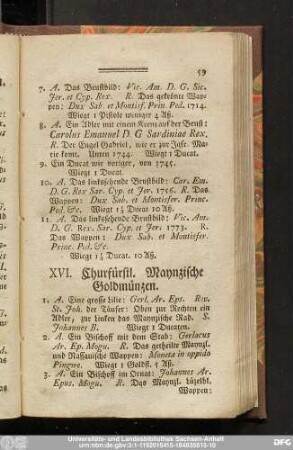 59
7. A. Das Brustbild: Vic. Am. D. G. Sic.
Jer. et Cyp. Rex. R. Das gekrönte Wap-
pen: Dux Sab. et Montisf. Prin. Ped. 1714.
Wiegt 1 Pistole weniger 4 Aß.
8. A. Ein Adler mit einem Kreuz auf der Brust:
Carolus Emanuel D. G Sardiniae Rex.
R. Der Engel Gabriel, wie er zur Jgfr. Ma-
rie komt. Unten 1744. Wiegt 1 Ducat.
9. Ein Ducat wie voriger, von 1745.
Wiegt 1 Ducat.
10. A. Das linksehende Brustbild: Car. Em.
D. G. Rex Sar. Cyp. et Jer. 1756. R. Das
Wappen: Dux Sab. et Montisfer. Princ.
Ped. &c. Wiegt 1½ Ducat 10 Aß.
11. A. Das linksehende Brustbild: Vic. Am.
D. G. Rex. Sar. Cyp. et Jer. 1773. R.
Das Wappen: Dux Sab. et Montisfer.
Princ. Ped. &c.
Wiegt 1½ Ducat. 10 Aß.
XVI. Churfürstl. Maynzische
Goldmünzen.
1. A. Eine grosse Lilie: Gerl. Ar. Eps. Rev.
St. Joh. der Täufer: Oben zur Rechten ein
Adler, zur linken das Maynzische Rad. S.
Johannes B. Wiegt 1 Ducaten.
2. A. Ein Bischoff mit dem Stab: Gerlacus
Ar. Ep. Mogu. R. Das getheilte Maynzl.
und Naßauische Wappen: Moneta in oppido
Pingwe. Wiegt 1 Goldfl. 5 Aß.
3. A. Ein Bischoff im Ornat: Johannes Ar.
Epus. Mogu. R. Das Maynzl. lüzelbl.
Wappen:
Universitäts- und Landesbibliothek Sachsen-Anhalt
urn:nbn:de:gbv:3:1-1192015415-184635813-10